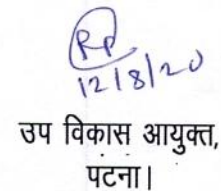 RP
12/8/20
उप विकास आयुक्त,
पटना।